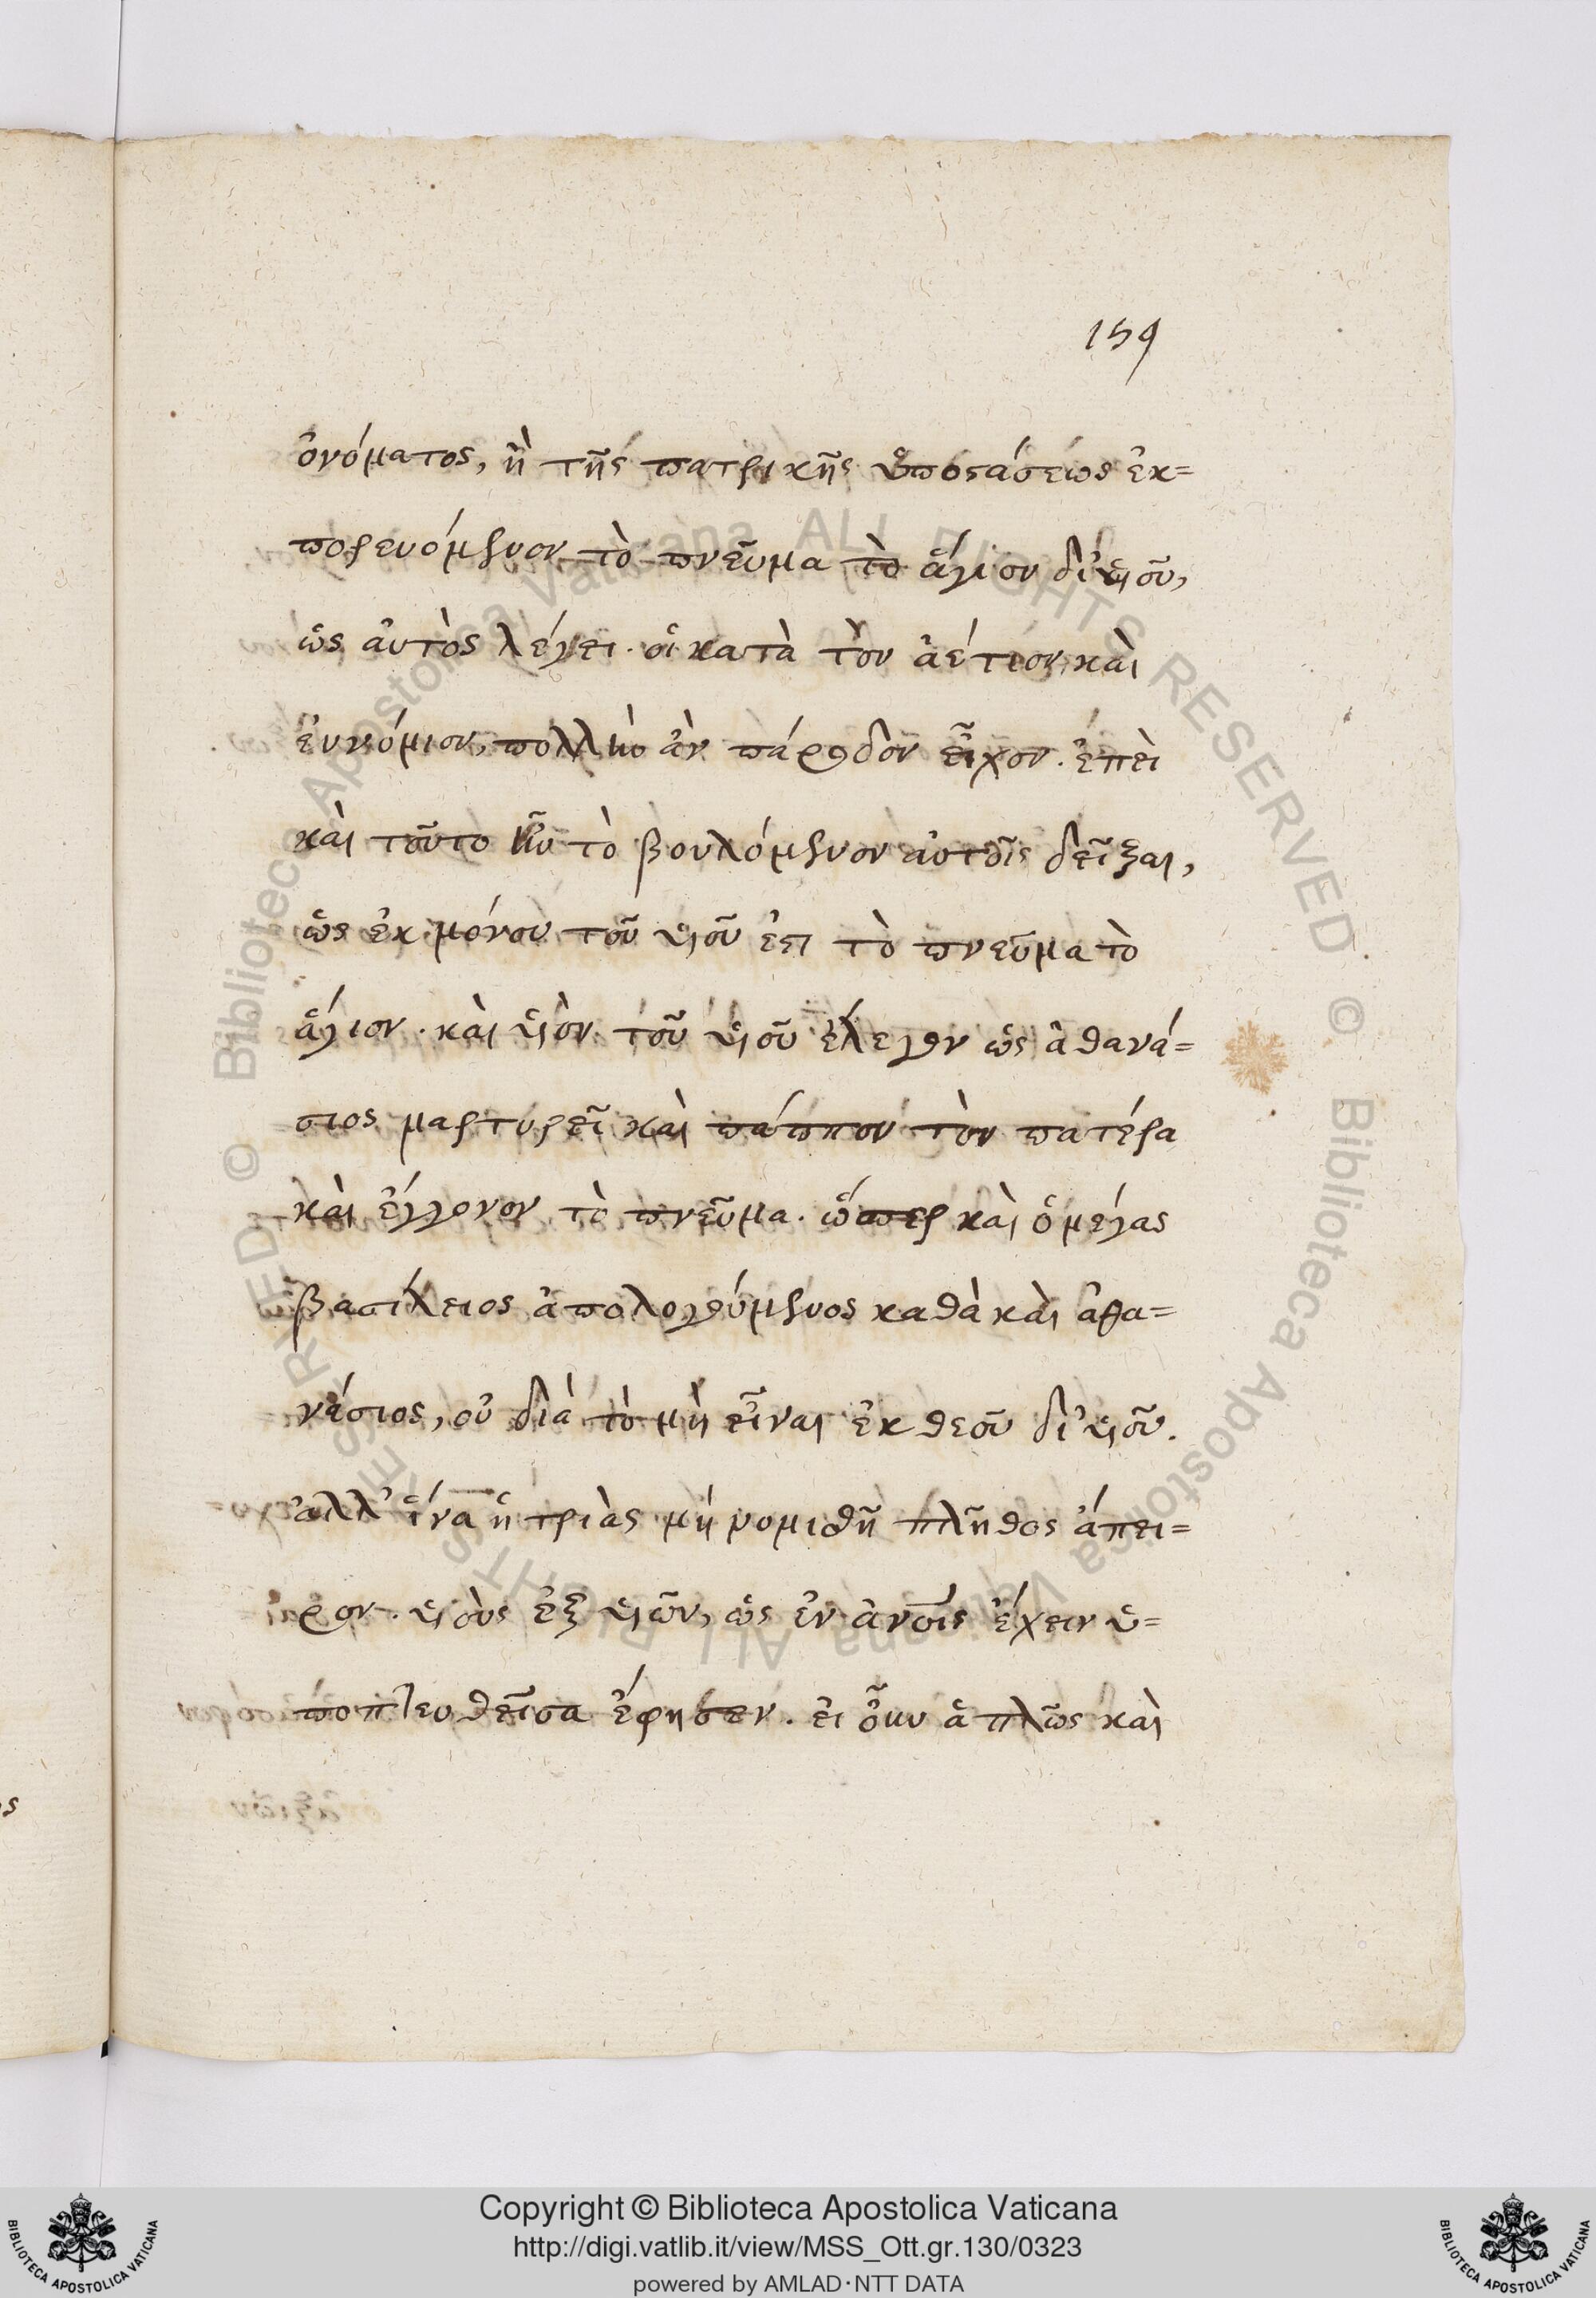 159
ὀνόματος, ἢ τῆς πατρικῆς ὑποστάσεως ἐκ=
πορευόμενον τὸ πνεῦμα τὸ ἅγιον δι' υἱοῦ,
ὡς αὐτὸς λέγει. οἱ κατὰ τὸν ἀέτιον καὶ
εὐνόμιον, πολλὴν ἂν πάροδον εἶχον. ἐπεὶ
καὶ τοῦτο ἦν τὸ βουλόμενον αὐτοῖς δεῖξαι,
ὡς ἐκ μόνου τοῦ υἱοῦ ἐστι τὸ πνεῦμα τὸ
ἅγιον. καὶ υἱὸν τοῦ υἱοῦ ἔλεγον ὡς ἀθανά=
σιος μαρτυρεῖ καὶ πάππον τὸν πατέρα
καὶ ἔγγονον τὸ πνεῦμα. ὥσπερ καὶ ὁ μέγας
βασίλειος ἀπολογούμενος καθὰ καὶ ἀθα=
νάσιος, οὐ διὰ τὸ μὴ εἶναι ἐκ θεοῦ δι' υἱοῦ.
ἀλλ' ἵνα ἡ τριὰς μὴ νομισθῆ πλῆθος ἄπει=
ρον. υἱοὺς ἐξ υἱῶν, ὡς ἐν ἀνοις ἔχειν ὑ=
ποπτευθεῖσα ἔφησεν. εἰ οὖν ἁπλῶς καὶ
Copyright © Biblioteca Apostolica Vaticana
http://digi.vatlib.it/view/MSS_Ott.gr.130/0323
powered by AMLAD·NTT DATA
BIBLIOTECA APOSTOLICA VATICANA
BIBLIOTECA APOSTOLICA VATICANA
© Biblioteca Apostolica Vaticana ALL RIGHTS RESERVED
© Biblioteca Apostolica Vaticana ALL RIGHTS RESERVED